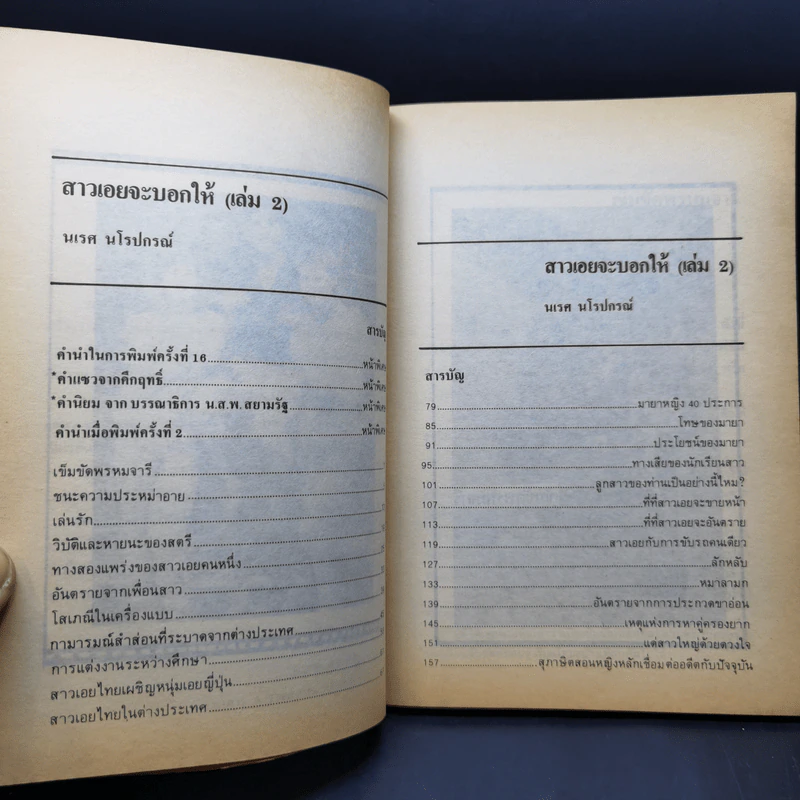 สาวเอยจะบอกให้ (เล่ม 2)
นเรศ นโรปกรณ์
สารบัญ
คำนำในการพิมพ์ครั้งที่ 16 หน้าพิเศษ
*คำแซวจากคึกฤทธิ์ หน้าพิเศษ
*คำนิยม จาก บรรณาธิการ น.ส.พ. สยามรัฐ หน้าพิเศษ
คำนำเมื่อพิมพ์ครั้งที่ 2 หน้าพิเศษ
เข็มขัดพรหมจารี
ชนะความประหม่าอาย
เล่นรัก
วิบัติและหายนะของสตรี
ทางสองแพร่งของสาวเอยคนหนึ่ง
อันตรายจากเพื่อนสาว
โสเภณีในเครื่องแบบ
กามารมณ์สำส่อนที่ระบาดจากต่างประเทศ
การแต่งงานระหว่างศึกษา
สาวเอยไทยเผชิญหนุ่มเอยญี่ปุ่น
สาวเอยไทยในต่างประเทศ
สาวเอยจะบอกให้ (เล่ม 2)
นเรศ นโรปกรณ์
สารบัญ
79 มายาหญิง 40 ประการ
85 โทษของมายา
91 ประโยชน์ของมายา
95 ทางเสียของนักเรียนสาว
101 ลูกสาวของท่านเป็นอย่างนี้ไหม?
107 ที่ที่สาวเอยจะขายหน้า
113 ที่ที่สาวเอยจะอันตราย
119 สาวเอยกับการขับรถคนเดียว
127 ลักหลับ
133 หมาลามก
139 อันตรายจากการประกวดขาอ่อน
145 เหตุแห่งการหาคู่ครองยาก
151 แด่สาวใหญ่ด้วยดวงใจ
157 สุภาษิตสอนหญิงหลักเชื่อมต่ออดีตกับปัจจุบัน